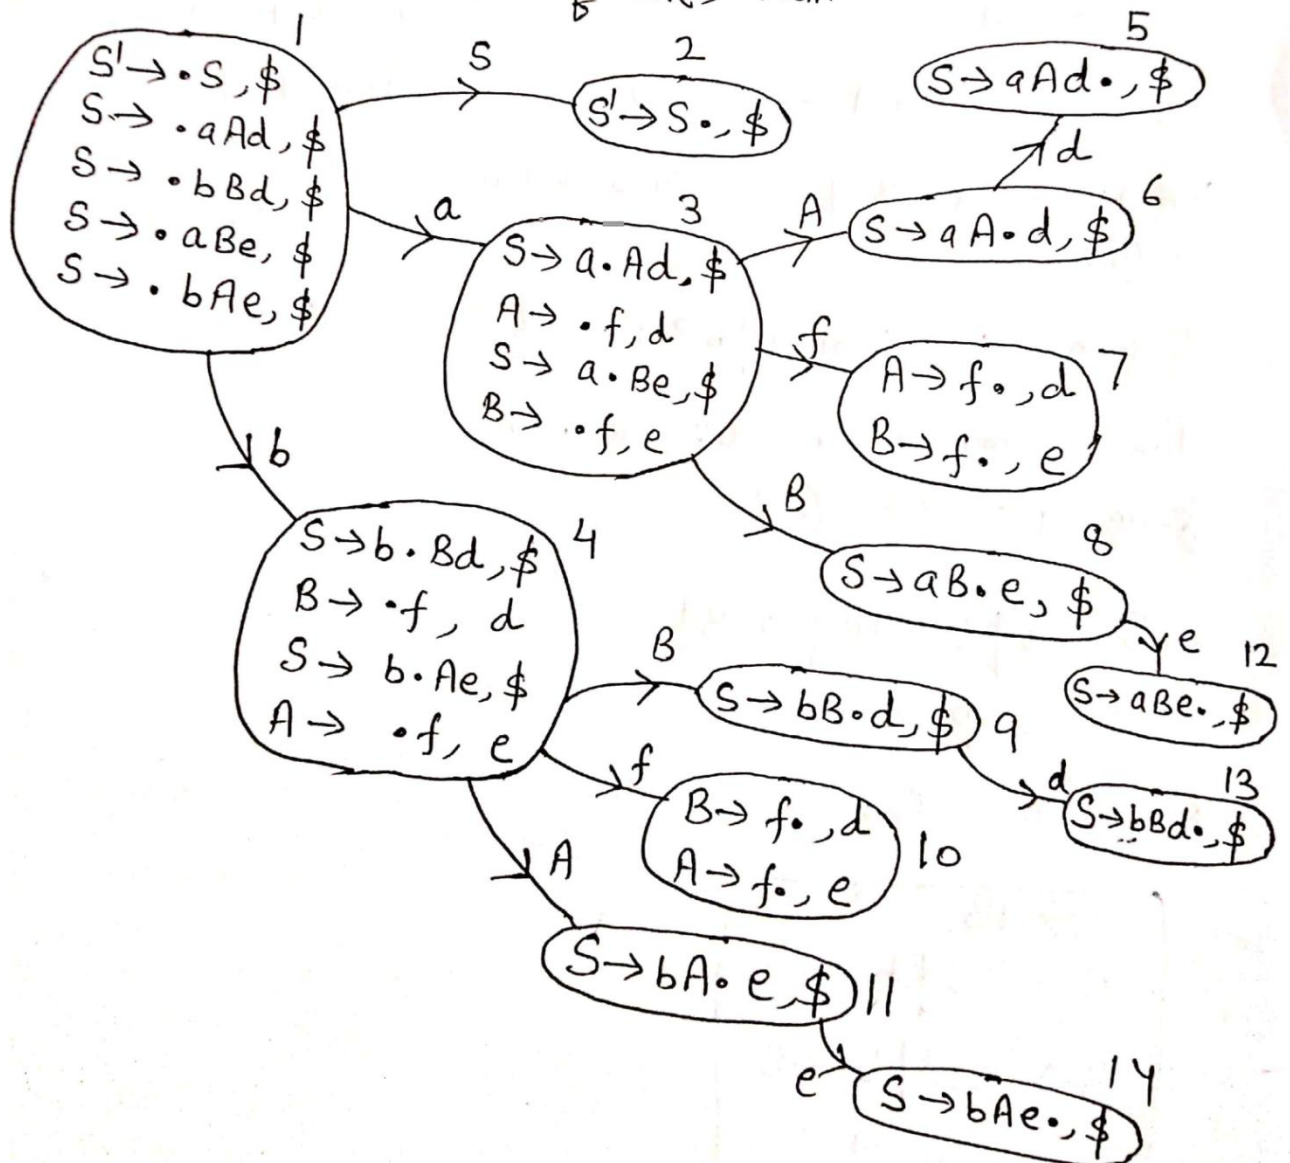 1
S'→•S,$
S→•aAd,$
S→•bBd,$
S→•aBe,$
S→•bAe,$
S
2
S'→S•,$
5
S→aAd•,$
d
a
3
S→a•Ad,$
A→•f,d
S→a•Be,$
B→•f,e
A
6
S→aA•d,$
f
7
A→f•,d
B→f•,e
b
B
8
S→aB•e,$
e
12
S→aBe•,$
4
S→b•Bd,$
B→•f,d
S→b•Ae,$
A→•f,e
B
S→bB•d,$
9
d
13
S→bBd•,$
f
B→f•,d
A→f•,e
10
A
S→bA•e,$
11
e
14
S→bAe•,$